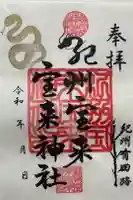 奉拝
紀州宝来
宝来神社
令和 年 月 日
紀州有田路